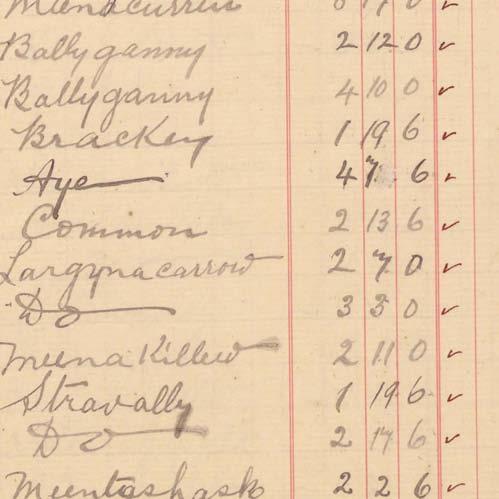 Meenacurrin
Ballyganny 2 12 0
Ballyganny 4 10 0
Brackey 1 19 6
Aye 4 7 6
Common 2 13 6
Largynacarrow 2 7 0
Do 3 5 0
Meenakillew 2 11 0
Stravally 1 19 6
Do 2 17 6
Meentashask 2 2 6